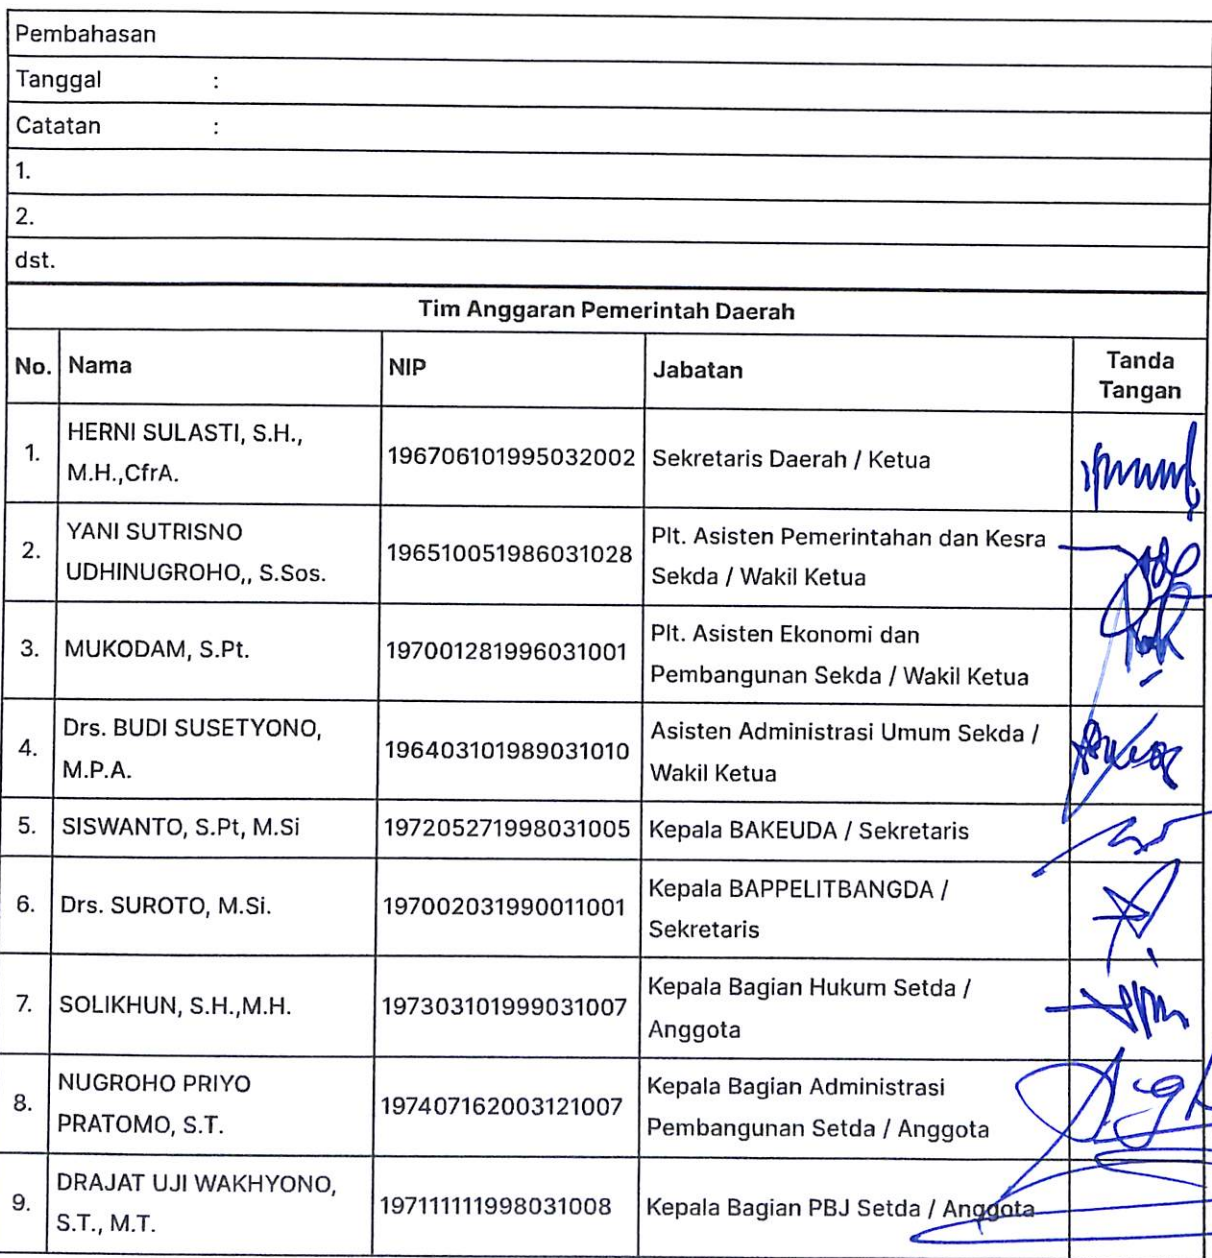 Pembahasan
Tanggal :
Catatan :
1.
2.
dst.
Tim Anggaran Pemerintah Daerah
No. Nama NIP Jabatan Tanda Tangan
1. HERNI SULASTI, S.H., M.H.,CfrA. 196706101995032002 Sekretaris Daerah / Ketua
2. YANI SUTRISNO UDHINUGROHO,, S.Sos. 196510051986031028 Plt. Asisten Pemerintahan dan Kesra Sekda / Wakil Ketua
3. MUKODAM, S.Pt. 197001281996031001 Plt. Asisten Ekonomi dan Pembangunan Sekda / Wakil Ketua
4. Drs. BUDI SUSETYONO, M.P.A. 196403101989031010 Asisten Administrasi Umum Sekda / Wakil Ketua
5. SISWANTO, S.Pt, M.Si 197205271998031005 Kepala BAKEUDA / Sekretaris
6. Drs. SUROTO, M.Si. 197002031990011001 Kepala BAPPELITBANGDA / Sekretaris
7. SOLIKHUN, S.H.,M.H. 197303101999031007 Kepala Bagian Hukum Setda / Anggota
8. NUGROHO PRIYO PRATOMO, S.T. 197407162003121007 Kepala Bagian Administrasi Pembangunan Setda / Anggota
9. DRAJAT UJI WAKHYONO, S.T., M.T. 197111111998031008 Kepala Bagian PBJ Setda / Anggota